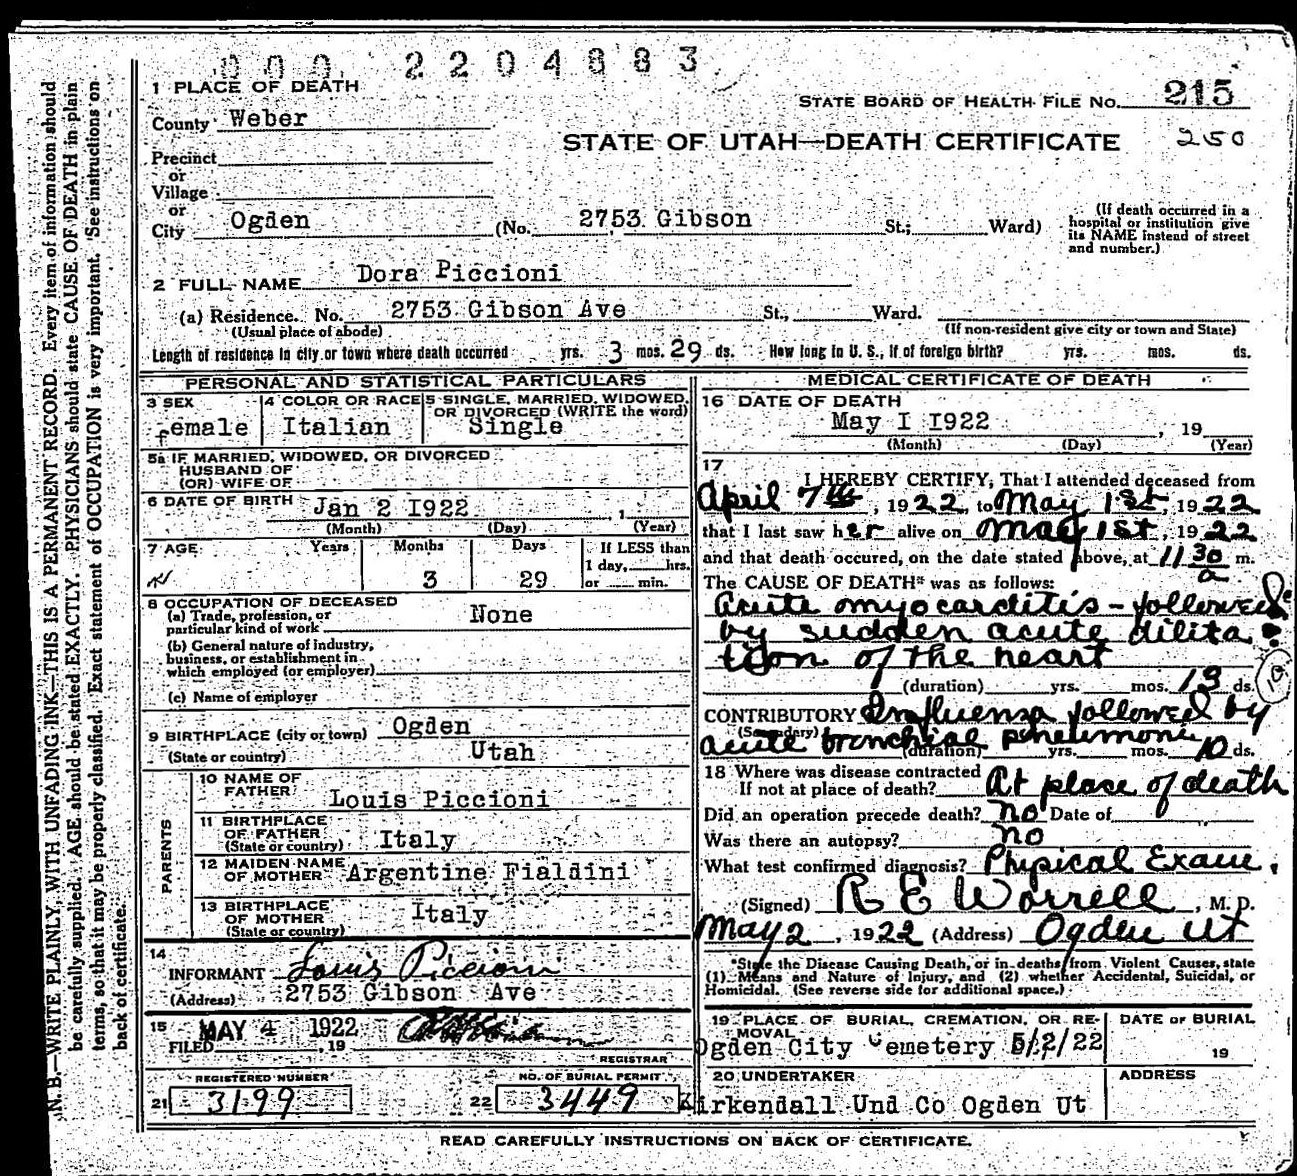 000 2204883
1 PLACE OF DEATH
STATE BOARD OF HEALTH FILE No. 215
County Weber
STATE OF UTAH—DEATH CERTIFICATE 250
Precinct
or
Village
or
City Ogden (No. 2753 Gibson St.; Ward)
(If death occurred in a hospital or institution give its NAME instead of street and number.)
2 FULL NAME Dora Piccioni
(a) Residence. No. 2753 Gibson Ave St., Ward.
(Usual place of abode) (If non-resident give city or town and State)
Length of residence in city or town where death occurred yrs. 3 mos. 29 ds. How long in U. S., if of foreign birth? yrs. mos. ds.
PERSONAL AND STATISTICAL PARTICULARS
3 SEX female
4 COLOR OR RACE Italian
5 SINGLE, MARRIED, WIDOWED, OR DIVORCED (WRITE the word) Single
5a IF MARRIED, WIDOWED, OR DIVORCED
HUSBAND OF
(OR) WIFE OF
6 DATE OF BIRTH Jan 2 I922 , 1
(Month) (Day) (Year)
7 AGE Years Months Days If LESS than
1 day, hrs.
3 29 or min.
8 OCCUPATION OF DECEASED
(a) Trade, profession, or
particular kind of work None
(b) General nature of industry,
business, or establishment in
which employed (or employer)
(c) Name of employer
9 BIRTHPLACE (city or town) Ogden
(State or country) Utah
PARENTS
10 NAME OF
FATHER Louis Piccioni
11 BIRTHPLACE
OF FATHER
(State or country) Italy
12 MAIDEN NAME
OF MOTHER Argentine Fialdini
13 BIRTHPLACE
OF MOTHER
(State or country) Italy
14
INFORMANT Louis Piccioni
(Address) 2753 Gibson Ave
15 MAY 4 1922
FILED 19
REGISTRAR
REGISTERED NUMBER NO. OF BURIAL PERMIT
21 3199 22 3449
MEDICAL CERTIFICATE OF DEATH
16 DATE OF DEATH
May I I922 , 19
(Month) (Day) (Year)
17
I HEREBY CERTIFY, That I attended deceased from
April 7th, 1922, to May 1st, 1922
that I last saw her alive on May 1st, 1922
and that death occured, on the date stated above, at 11 30 a m.
The CAUSE OF DEATH* was as follows:
Acute myocarditis - followed
by sudden acute dilita
tion of the heart
(duration) yrs. mos. 13 ds.
CONTRIBUTORY Influenza followed by
(Secondary)
acute bronchial pneumonia
(duration) yrs. mos. 10 ds.
18 Where was disease contracted
If not at place of death? At place of death
Did an operation precede death? no Date of
Was there an autopsy? no
What test confirmed diagnosis? Physical Exam.
(Signed) R E Worrell, M. D.
May 2, 1922 (Address) Ogden Ut
*State the Disease Causing Death, or in deaths from Violent Causes, state
(1) Means and Nature of Injury, and (2) whether Accidental, Suicidal, or
Homicidal. (See reverse side for additional space.)
19 PLACE OF BURIAL, CREMATION, OR RE-
MOVAL
DATE OF BURIAL
Ogden City Cemetery 5/2/22 19
20 UNDERTAKER ADDRESS
Kirkendall Und Co Ogden Ut
READ CAREFULLY INSTRUCTIONS ON BACK OF CERTIFICATE.
N. B.—WRITE PLAINLY, WITH UNFADING INK—THIS IS A PERMANENT RECORD. Every item of information should
be carefully supplied. AGE should be stated EXACTLY. PHYSICIANS should state CAUSE OF DEATH in plain
terms, so that it may be properly classified. Exact statement of OCCUPATION is very important. See instructions on
back of certificate.